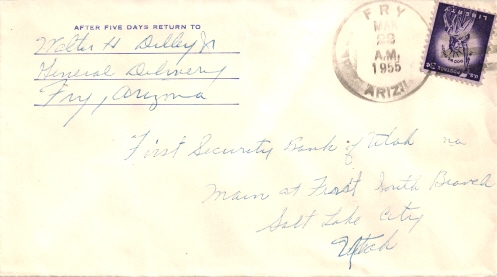 AFTER FIVE DAYS RETURN TO
Walter H Dilley Jr
General Delivery
Fry, Arizona
FRY
MAR
28
A.M.
1955
ARIZ.
LIBERTY
U.S. POSTAGE 3¢
First Security Bank of Utah na
Main at First South Branch
Salt Lake City
Utah